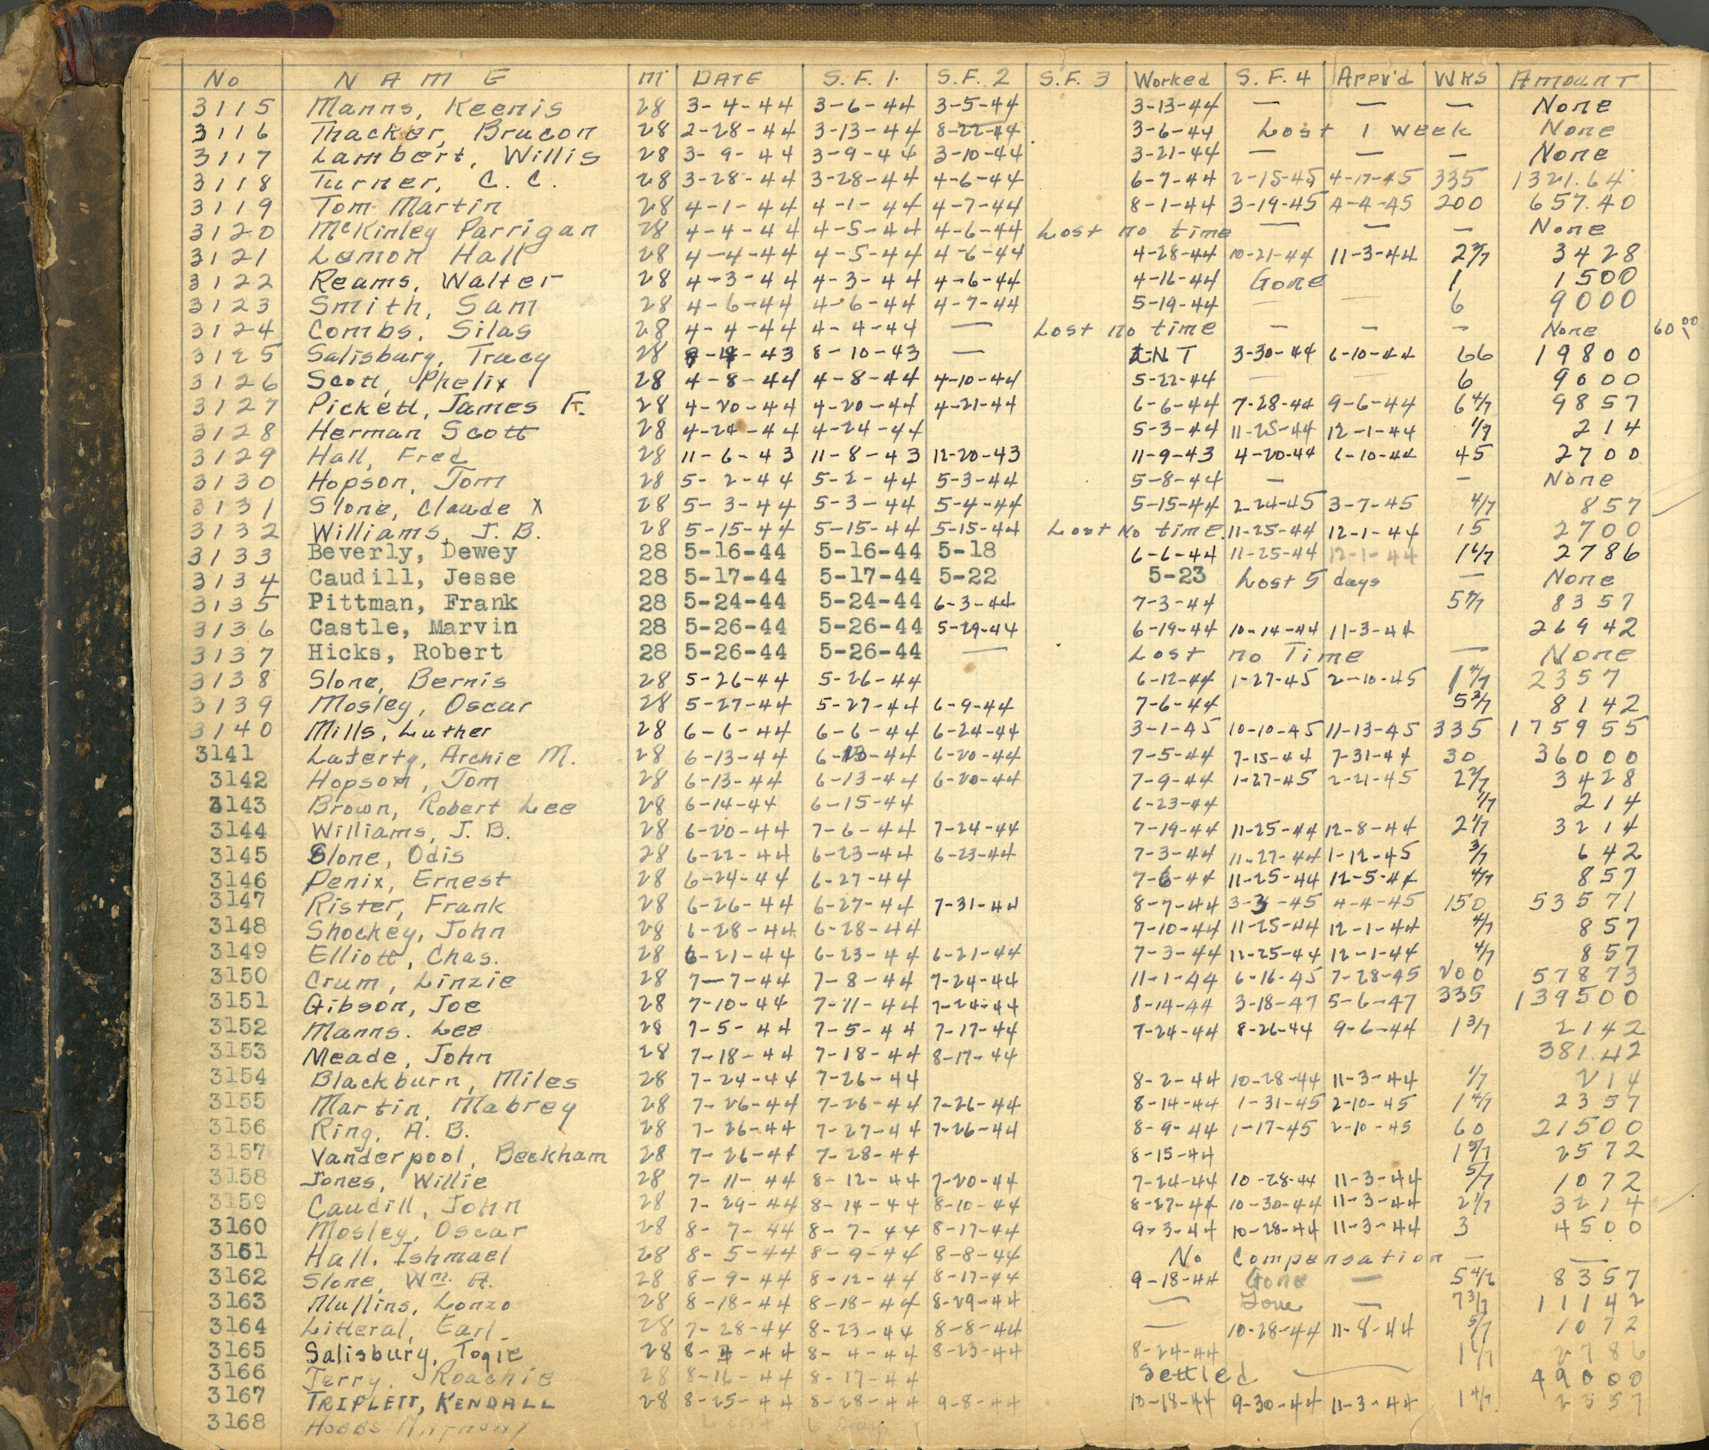 No N A M E M DATE S.F. 1. S.F. 2 S.F. 3 Worked S.F. 4 Appv'd WKS AMOUNT
3115 Manns, Keenis 28 3-4-44 3-6-44 3-5-44 3-13-44 — — — None
3116 Thacker, Brucon 28 2-28-44 3-13-44 8-22-44 3-6-44 Lost 1 week None
3117 Lambert, Willis 28 3-9-44 3-9-44 3-10-44 3-21-44 — — — None
3118 Turner, C. C. 28 3-28-44 3-28-44 4-6-44 6-7-44 2-15-45 4-17-45 335 1321.64
3119 Tom Martin 28 4-1-44 4-1-44 4-7-44 8-1-44 3-19-45 4-4-45 200 657.40
3120 McKinley Parrigan 28 4-4-44 4-5-44 4-6-44 Lost no time — — — None
3121 Lemon Hall 28 4-4-44 4-5-44 4-6-44 4-28-44 10-21-44 11-3-44 2 2/7 3428
3122 Reams, Walter 28 4-3-44 4-3-44 4-6-44 4-16-44 Gone 1 1500
3123 Smith, Sam 28 4-6-44 4-6-44 4-7-44 5-19-44 — — 6 9000
3124 Combs, Silas 28 4-4-44 4-4-44 — Lost no time — — — None 60 00
3125 Salisbury, Tracy 28 8-4-43 8-10-43 — LNT 3-30-44 6-10-44 66 19800
3126 Scott, Phelix 28 4-8-44 4-8-44 4-10-44 5-22-44 — — 6 9000
3127 Pickett, James F. 28 4-20-44 4-20-44 4-21-44 6-6-44 7-28-44 9-6-44 6 4/7 9857
3128 Herman Scott 28 4-24-44 4-24-44 5-3-44 11-25-44 12-1-44 1/7 214
3129 Hall, Fred 28 11-6-43 11-8-43 12-20-43 11-9-43 4-20-44 6-10-44 45 2700
3130 Hopson, Tom 28 5-2-44 5-2-44 5-3-44 5-8-44 — — None
3131 Slone, Claude X 28 5-3-44 5-3-44 5-4-44 5-15-44 2-24-45 3-7-45 4/7 857
3132 Williams, J. B. 28 5-15-44 5-15-44 5-15-44 Lost No time. 11-25-44 12-1-44 15 2700
3133 Beverly, Dewey 28 5-16-44 5-16-44 5-18 6-6-44 11-25-44 12-1-44 1 6/7 2786
3134 Caudill, Jesse 28 5-17-44 5-17-44 5-22 5-23 Lost 5 days — None
3135 Pittman, Frank 28 5-24-44 5-24-44 6-3-44 7-3-44 5 4/7 8357
3136 Castle, Marvin 28 5-26-44 5-26-44 5-29-44 6-19-44 10-14-44 11-3-44 26942
3137 Hicks, Robert 28 5-26-44 5-26-44 — Lost no Time — None
3138 Slone, Bernis 28 5-26-44 5-26-44 6-12-44 1-27-45 2-10-45 1 4/7 2357
3139 Mosley, Oscar 28 5-27-44 5-27-44 6-9-44 7-6-44 5 3/7 8142
3140 Mills, Luther 28 6-6-44 6-6-44 6-24-44 3-1-45 10-10-45 11-13-45 335 175955
3141 Laferty, Archie M. 28 6-13-44 6-13-44 6-20-44 7-5-44 7-15-44 7-31-44 30 36000
3142 Hopson, Tom 28 6-13-44 6-13-44 6-20-44 7-9-44 1-27-45 2-21-45 2 2/7 3428
3143 Brown, Robert Lee 28 6-14-44 6-15-44 6-23-44 1/7 214
3144 Williams, J. B. 28 6-20-44 7-6-44 7-24-44 7-19-44 11-25-44 12-8-44 2 1/7 3214
3145 Slone, Odis 28 6-22-44 6-23-44 6-23-44 7-3-44 11-27-44 1-12-45 3/7 642
3146 Penix, Ernest 28 6-24-44 6-27-44 7-6-44 11-25-44 12-5-44 4/7 857
3147 Rister, Frank 28 6-26-44 6-27-44 7-31-44 8-7-44 3-3-45 4-4-45 150 53571
3148 Shockey, John 28 6-28-44 6-28-44 7-10-44 11-25-44 12-1-44 4/7 857
3149 Elliott, Chas. 28 6-21-44 6-23-44 6-21-44 7-3-44 11-25-44 12-1-44 4/7 857
3150 Crum, Linzie 28 7-7-44 7-8-44 7-24-44 11-1-44 6-16-45 7-28-45 200 57873
3151 Gibson, Joe 28 7-10-44 7-11-44 7-24-44 8-14-44 3-18-47 5-6-47 335 139500
3152 Manns. Lee 28 7-5-44 7-5-44 7-17-44 7-24-44 8-26-44 9-6-44 1 3/7 2142
3153 Meade, John 28 7-18-44 7-18-44 8-17-44 381.42
3154 Blackburn, Miles 28 7-24-44 7-26-44 8-2-44 10-28-44 11-3-44 1/7 214
3155 Martin, Mabrey 28 7-26-44 7-26-44 7-26-44 8-14-44 1-31-45 2-10-45 1 4/7 2357
3156 Ring, A. B. 28 7-26-44 7-27-44 7-26-44 8-9-44 1-17-45 2-10-45 60 21500
3157 Vanderpool, Beckham 28 7-26-44 7-28-44 8-15-44 1 5/7 2572
3158 Jones, Willie 28 7-11-44 8-12-44 7-20-44 7-24-44 10-28-44 11-3-44 5/7 1072
3159 Caudill, John 28 7-29-44 8-14-44 8-10-44 8-27-44 10-30-44 11-3-44 2 1/7 3214
3160 Mosley, Oscar 28 8-7-44 8-7-44 8-17-44 9-3-44 10-28-44 11-3-44 3 4500
3161 Hall, Ishmael 28 8-5-44 8-9-44 8-8-44 No Compensation — —
3162 Slone, Wm. H. 28 8-9-44 8-12-44 8-17-44 9-18-44 Gone — 5 4/7 8357
3163 Mullins, Lonzo 28 8-18-44 8-18-44 8-29-44 — Gone — 7 3/7 11142
3164 Litteral, Earl 28 7-28-44 8-23-44 8-8-44 — 10-28-44 11-8-44 5/7 1072
3165 Salisbury, Togie 28 8-4-44 8-4-44 8-23-44 8-24-44 1 6/7 2786
3166 Terry, Roachie 28 8-16-44 8-17-44 Settled 49000
3167 TRIPLETT, KENDALL 28 8-25-44 8-28-44 9-8-44 10-18-44 9-30-44 11-3-44 1 4/7 2357
3168 Hobbs